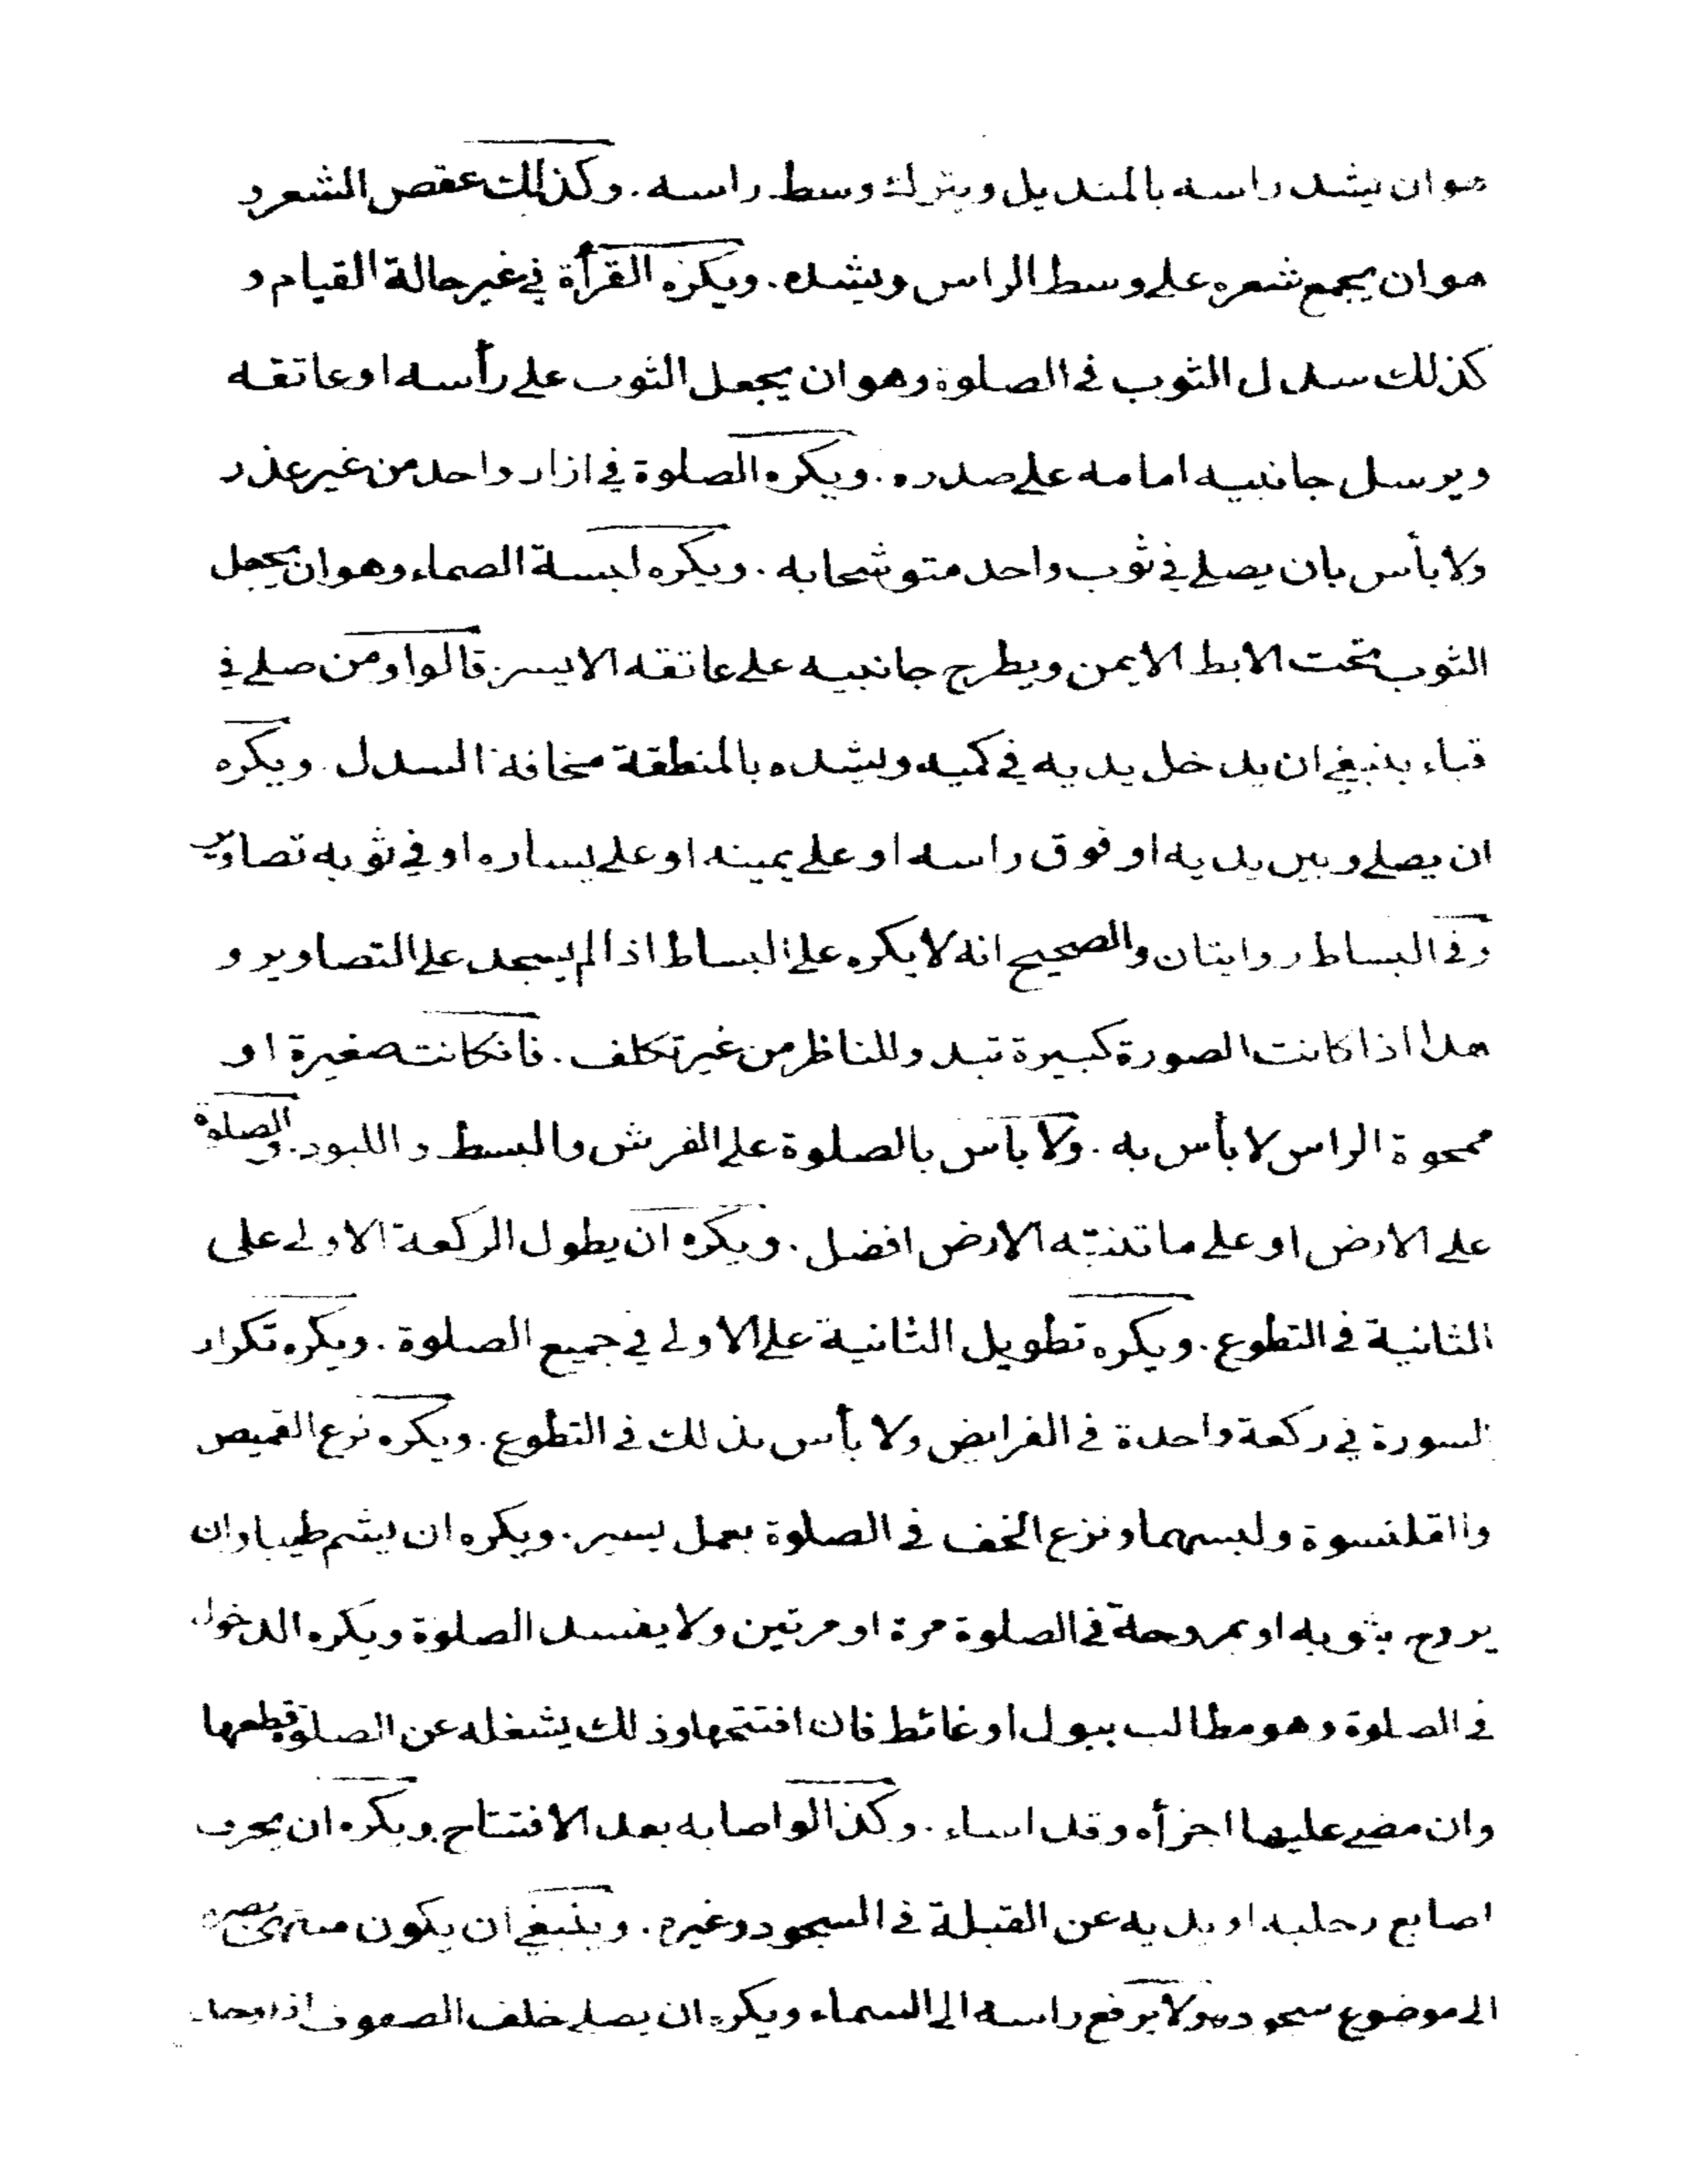 هوان يشد راسه بالمنديل ويترك وسط راسه. وكذلك عقص الشعر و
هوان يجمع شعره على وسط الراس ويشده. ويكره القرأة في غير حالة القيام و
كذلك سدل الثوب فى الصلوة وهوان يجعل الثوب على رأسه اوعاتقه
ويرسل جانبيه امامه على صدره. ويكره الصلوة في ازار واحد من غير عذر
ولا بأس بان يصلي في ثوب واحد متوشحا به. ويكره لبسة الصماء وهوان يجعل
الثوب تحت الابط الايمن ويطرح جانبيه على عاتقه الايسر. قالوا ومن صلى في
قباء ينبغي ان يدخل يديه في كميه ويشده بالمنطقة مخافة السدل. ويكره
ان يصلي وبين يديه او فوق راسه او على يمينه او على يساره او في ثوبه تصاوير
وفى البساط روايتان والصحيح انه لا يكره على البساط اذا لم يسجد على التصاوير و
هذا اذا كانت الصورة كبيرة تبدو للناظر من غير تكلف. فانكانت صغيرة او
ممحوة الراس لا بأس به. ولا بأس بالصلوة على الفرش والبسط و اللبود. والصلوة
على الارض او على ما تنبته الارض افضل. ويكره ان يطول الركعة الاولى على
الثانية فى التطوع. ويكره تطويل الثانية على الاولى في جميع الصلوة. ويكره تكرار
السورة في ركعة واحدة فى الفرايض ولا بأس بذلك فى التطوع. ويكره نزع القميص
والقلنسوة ولبسهما ونزع الخف فى الصلوة بعمل يسير. ويكره ان يشم طيبا وان
يروح بثوبه او بمروحة فى الصلوة مرة او مرتين ولا يفسد الصلوة ويكره الدخول
فى الصلوة وهو مطالب ببول او غائط فان افتتحها وذلك يشغله عن الصلوة قطعها
وان مضى عليها اجزأه وقد اساء. وكذا لو اصابه بعد الافتتاح. ويكره ان يحرف
اصابع رجليه او يديه عن القبلة فى السجود وغيره. وينبغي ان يكون منتهى بصره
الى موضوع سجوده ولا يرفع راسه الى السماء ويكره ان يصلي خلف الصفوف اذا وجد